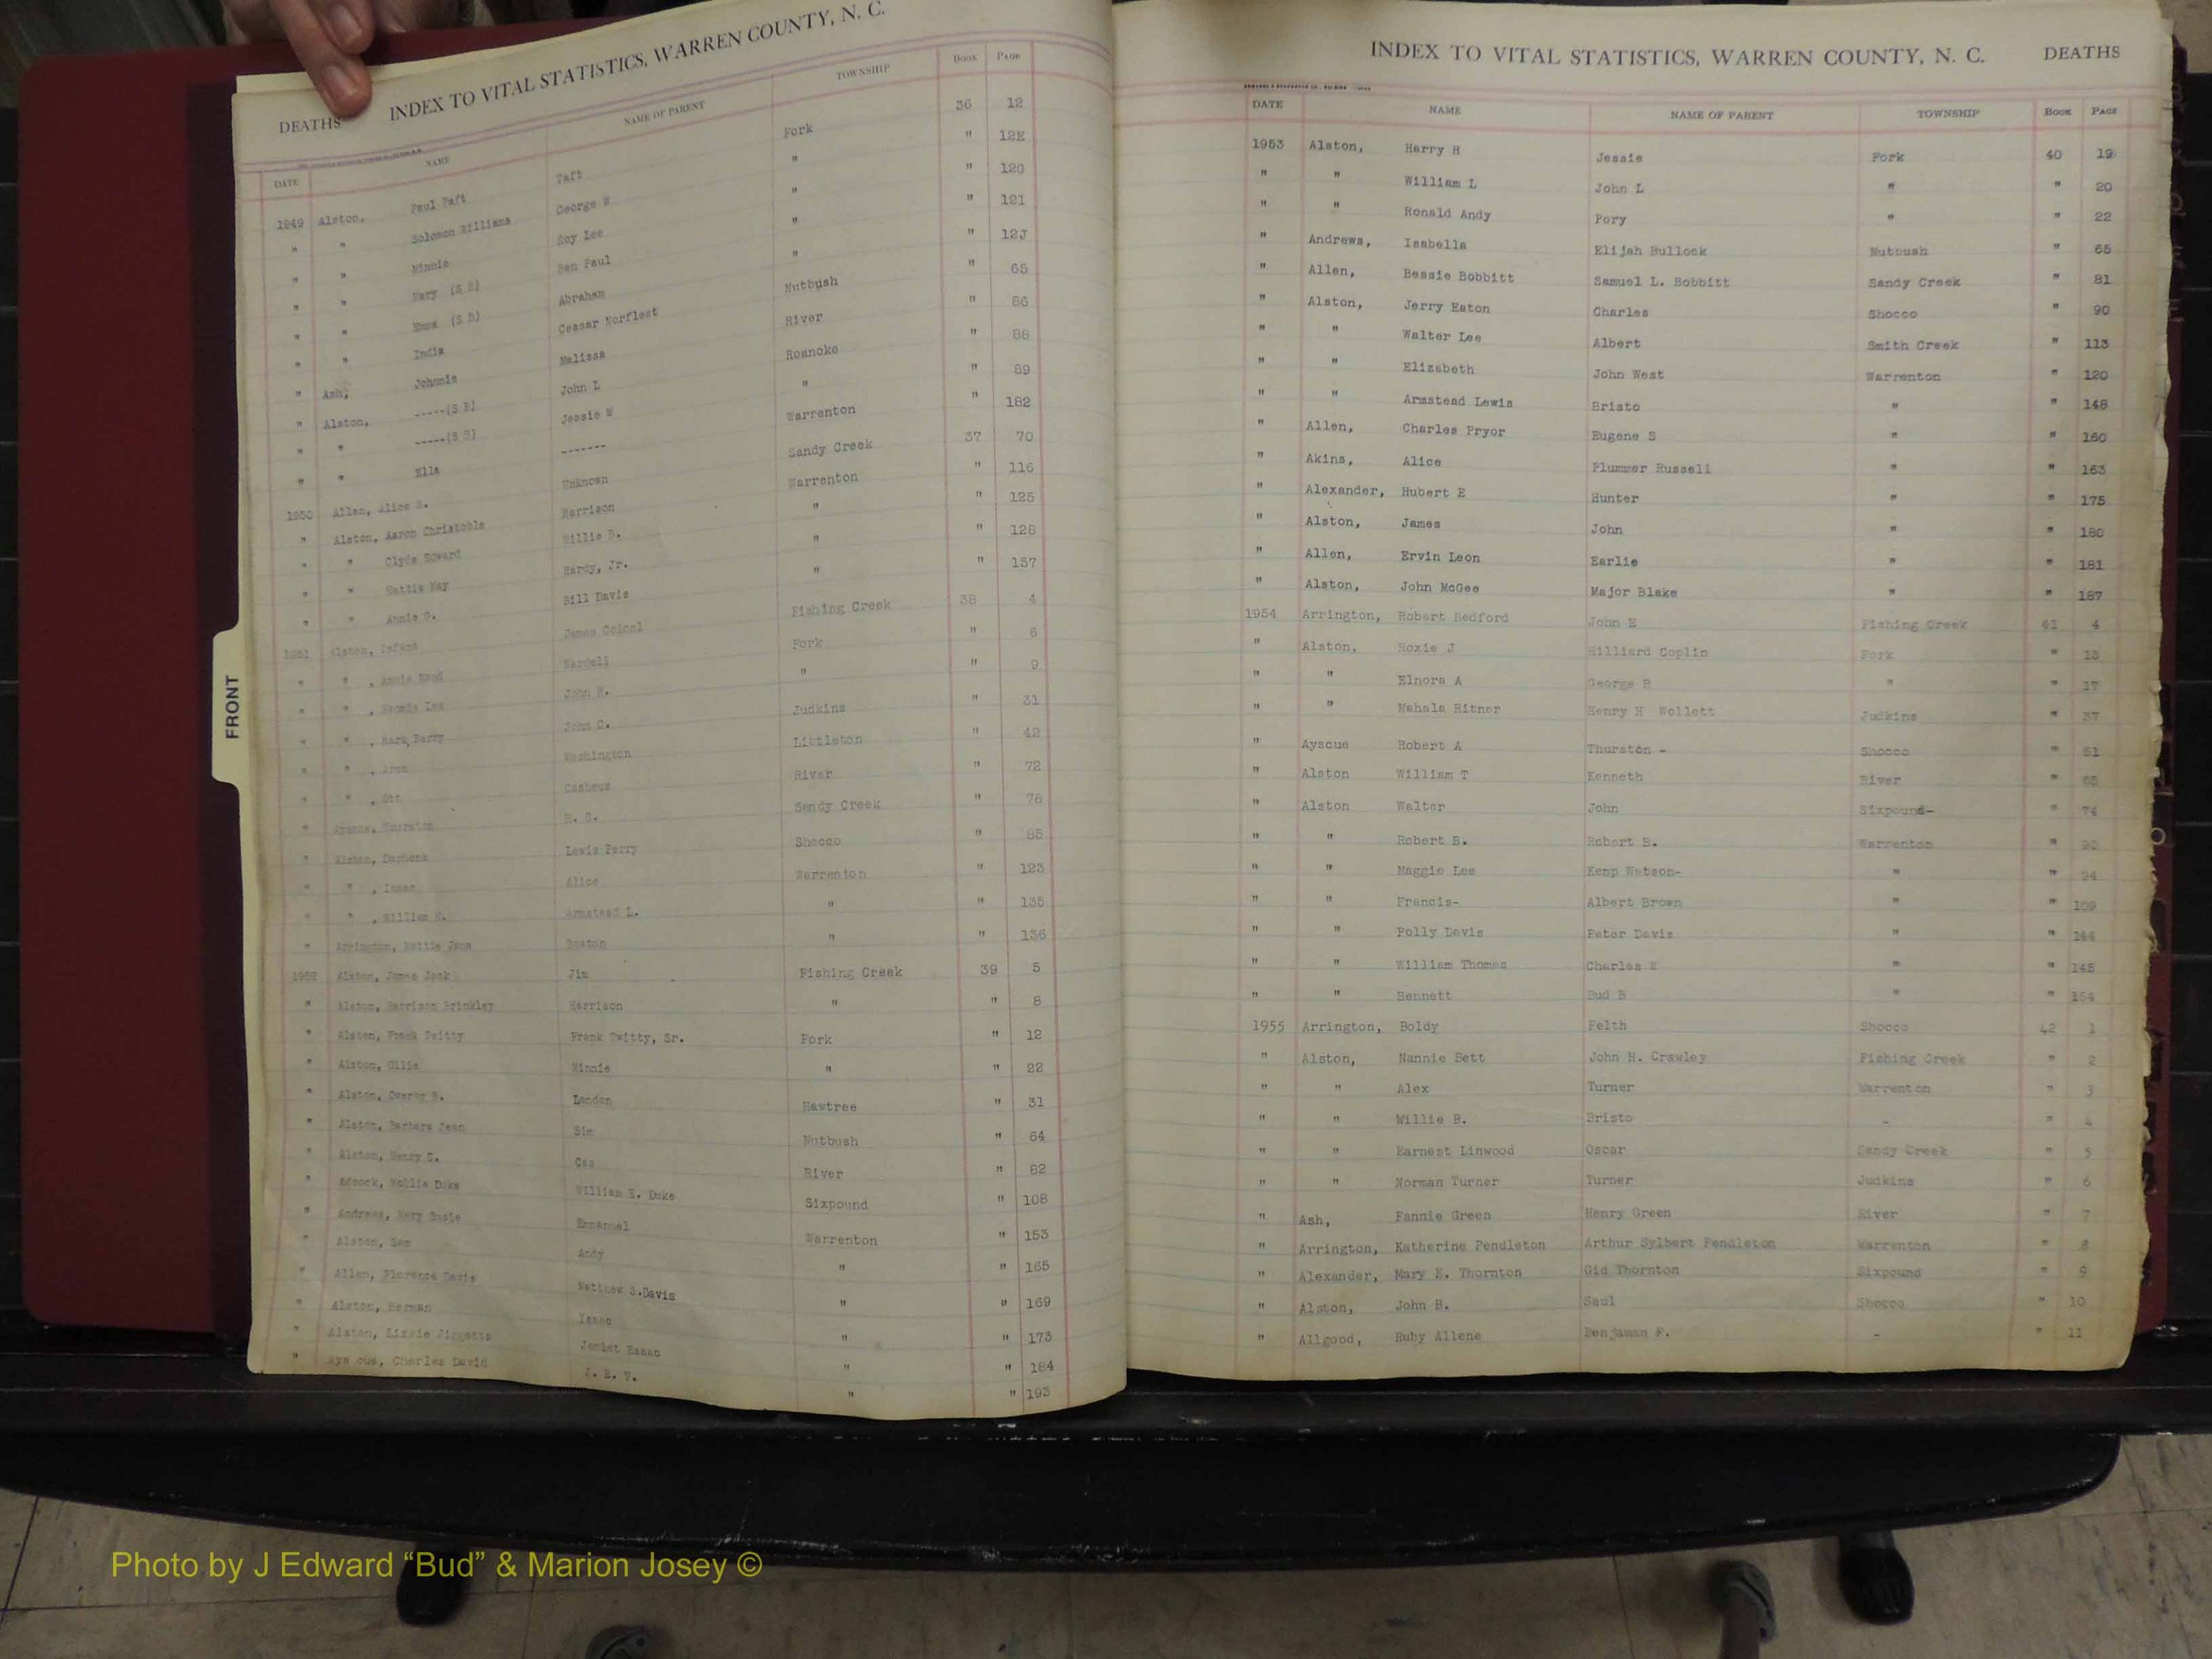 INDEX TO VITAL STATISTICS, WARREN COUNTY, N. C.
DEATHS
DATE NAME NAME OF PARENT TOWNSHIP BOOK PAGE
1949 Alston, Paul Taft Taft Fork 36 12
" " Solomon Williams George W " " 12E
" " Minnie Roy Lee " " 12G
" " Mary (S B) Ben Paul " " 12I
" " Emma (S B) Abraham " " 12J
" " India Ceasar Norfleet Nutbush " 65
" Ash, Johnnie Melissa River " 86
" Alston, -----(S B) John L Roanoke " 88
" " -----(S B) Jessie W " " 89
" " Ella ------- Warrenton " 182
1950 Allen, Alice S. Unknown Sandy Creek 37 70
" Alston, Aaron Christoble Harrison Warrenton " 116
" " Clyde Edward Willie B. " " 125
" " Hattie May Hardy, Jr. " " 128
" " Annie G. Bill Davis " " 157
1951 Alston, Infant James Colonl Fishing Creek 38 4
" " , Annie Wardell Fork " 6
" " , Lee John H. " " 9
" " , Mark Perry John C. Judkins " 31
" " , Washington Littleton " 42
" " , River " 72
" Ayscue, Thurston H. G. Sandy Creek " 78
" Alston, Daphena Lewis Perry Shocco " 85
" " , Isaac Alice Warrenton " 123
" " , William H. Armstead L. " " 135
" Arrington, Mattie Jane Boston " " 136
1952 Alston, James Jack Jim Fishing Creek 39 5
" Alston, Harrison Brinkley Harrison " " 8
" Alston, Frank Twitty Frank Twitty, Sr. Fork " 12
" Alston, Ollie Minnie " " 22
" Alston, B. Landon Hawtree " 31
" Alston, Barbara Jean Sim Nutbush " 64
" Alston, Henry C. Cas River " 82
" Adcock, Mollie Duke William E. Duke Sixpound " 108
" Andrews, Mary Susie Emmanuel Warrenton " 153
" Alston, Sam Andy " " 165
" Allen, Florence Davis Matthew S.Davis " " 169
" Alston, Herman Isaac " " 173
" Alston, Lizzie Jiggetts Isaac " " 184
" Ays cue, Charles David J. E. T. " " 193
FRONT
INDEX TO VITAL STATISTICS, WARREN COUNTY, N. C. DEATHS
DATE NAME NAME OF PARENT TOWNSHIP BOOK PAGE
1953 Alston, Harry H Jessie Fork 40 19
" " William L John L " " 20
" " Ronald Andy Pory " " 22
" Andrews, Isabella Elijah Bullock Nutbush " 65
" Allen, Bessie Bobbitt Samuel L. Bobbitt Sandy Creek " 81
" Alston, Jerry Eaton Charles Shocco " 90
" " Walter Lee Albert Smith Creek " 113
" " Elizabeth John West Warrenton " 120
" " Armstead Lewis Bristo " " 148
" Allen, Charles Pryor Eugene S " " 160
" Akins, Alice Plummer Russell " " 163
" Alexander, Hubert E Hunter " " 175
" Alston, James John " " 180
" Allen, Ervin Leon Earlie " " 181
" Alston, John McGee Major Blake " " 187
1954 Arrington, Robert Bedford John E Fishing Creek 41 4
" Alston, Roxie J Hilliard Coplin Fork " 15
" " Elnora A George B " " 17
" " Mahala Ritner Henry H Wollett Judkins " 37
" Ayscue Robert A Thurston - Shocco " 51
" Alston William T Kenneth River " 65
" Alston Walter John Sixpound- " 74
" " Robert B. Robert B. Warrenton "
" " Maggie Lee Kemp Watson- " " 94
" " Francis- Albert Brown " " 109
" " Polly Davis Peter Davis " " 144
" " William Thomas Charles E " " 145
" " Bennett Bud B " " 154
1955 Arrington, Boldy Felth Shocco 42 1
" Alston, Nannie Bett John H. Crawley Fishing Creek " 2
" " Alex Turner Warrenton " 3
" " Willie B. Bristo - " 4
" " Earnest Linwood Oscar Sandy Creek " 5
" " Norman Turner Turner Judkins " 6
" Ash, Fannie Green Henry Green River " 7
" Arrington, Katherine Pendleton Arthur Sylbert Pendleton Warrenton " 8
" Alexander, Mary E. Thornton Gid Thornton Sixpound " 9
" Alston, John H. Saul Shocco " 10
" Allgood, Ruby Allene Benjaman F. - " 11
Photo by J Edward “Bud” & Marion Josey ©